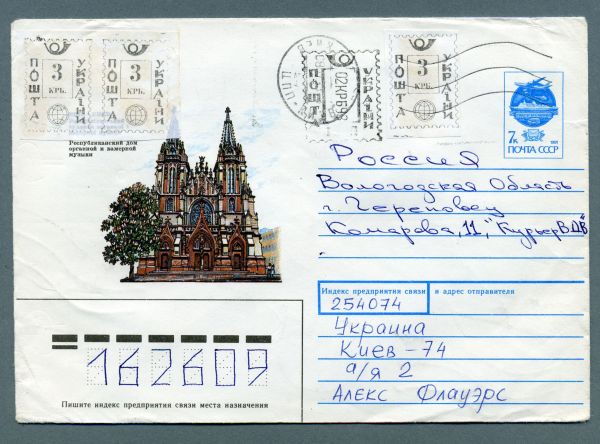 3
КРБ.
ПОШТА
УКРАЇНИ
3
КРБ.
ПОШТА
УКРАЇНИ
ПОШТА
УКРАЇНИ
3
КРБ.
ПОШТА
УКРАЇНИ
7к
1991
ПОЧТА СССР
Республиканский дом
органной и камерной
музыки
Россия
Вологодская Область
г. Череповец
Комарова, 11, "Курьер ВДВ"
Индекс предприятия связи и адрес отправителя
254074
Украина
Киев-74
а/я 2
Алекс Флауэрс
162609
Пишите индекс предприятия связи места назначения